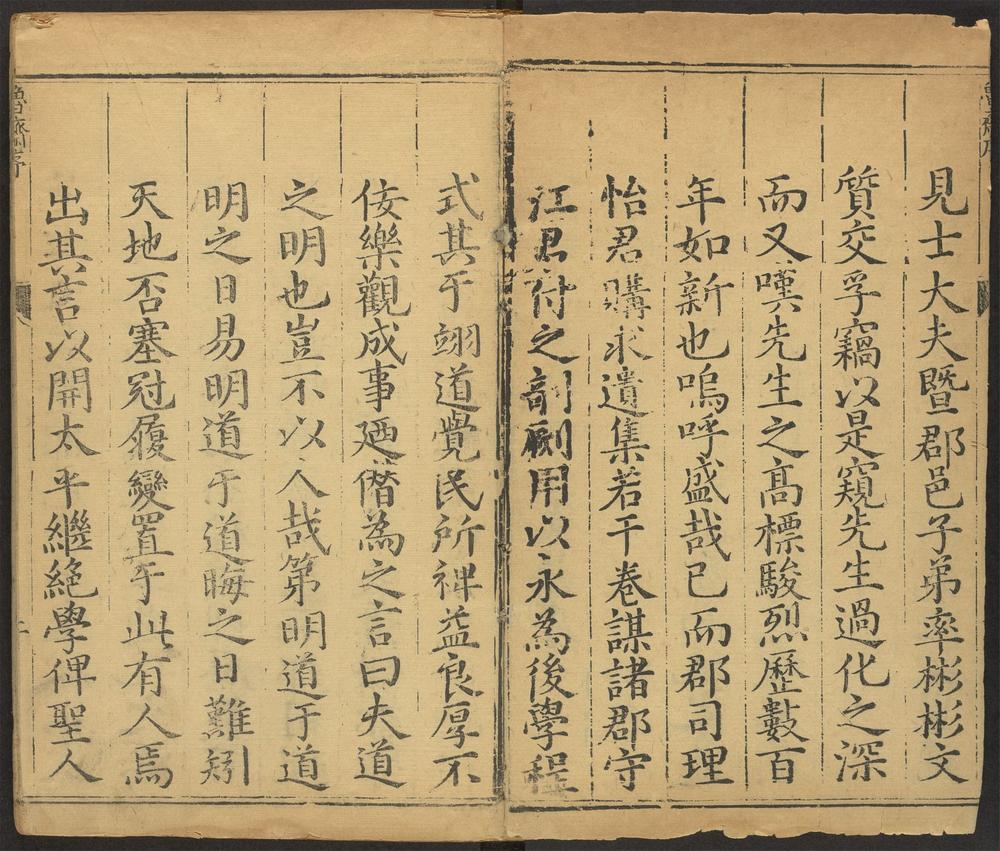 見士大夫暨郡邑子弟率彬彬文
質交孚竊以是窺先生過化之深
而又嘆先生之高標駿烈歷數百
年如新也嗚呼盛哉已而郡司理
怡君購求遺集若干卷謀諸郡守
江君付之剞劂用以永為後學程
式其于翊道覺民所裨益良厚不
佞樂觀成事廼僭為之言曰夫道
之明也豈不以人哉第明道于道
明之日易明道于道晦之日難矧
天地否塞冠履變置于此有人焉
出其言以開太平繼絕學俾聖人
魯齋序